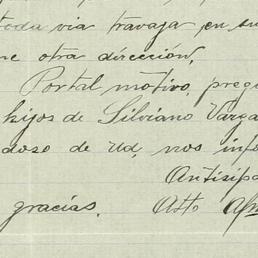 toda via travaja en su
ne otra dirección.
Portal motivo, preg
hijos de Silviano Varga
doso de Ud, nos info
Antisipa
gracias. Atto